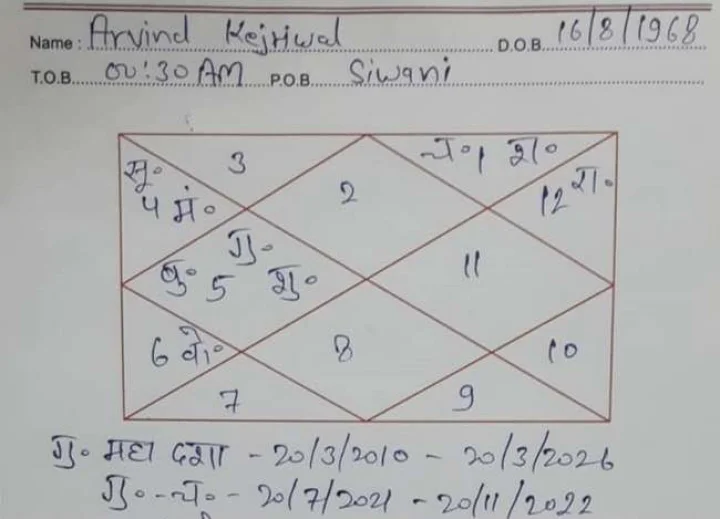 Name : Arvind Kejriwal D.O.B. 16/8/1968
T.O.B. 00:30 AM P.O.B. Siwani
सू॰ 3 चं॰ 1 श॰
4 मं॰ 2 12 रा॰
गु॰
बु॰ 5 शु॰ 11
6 के॰ 8 10
7 9
गु॰ महा दशा - 20/3/2010 - 20/3/2026
गु॰ - चं॰ - 20/7/2021 - 20/11/2022